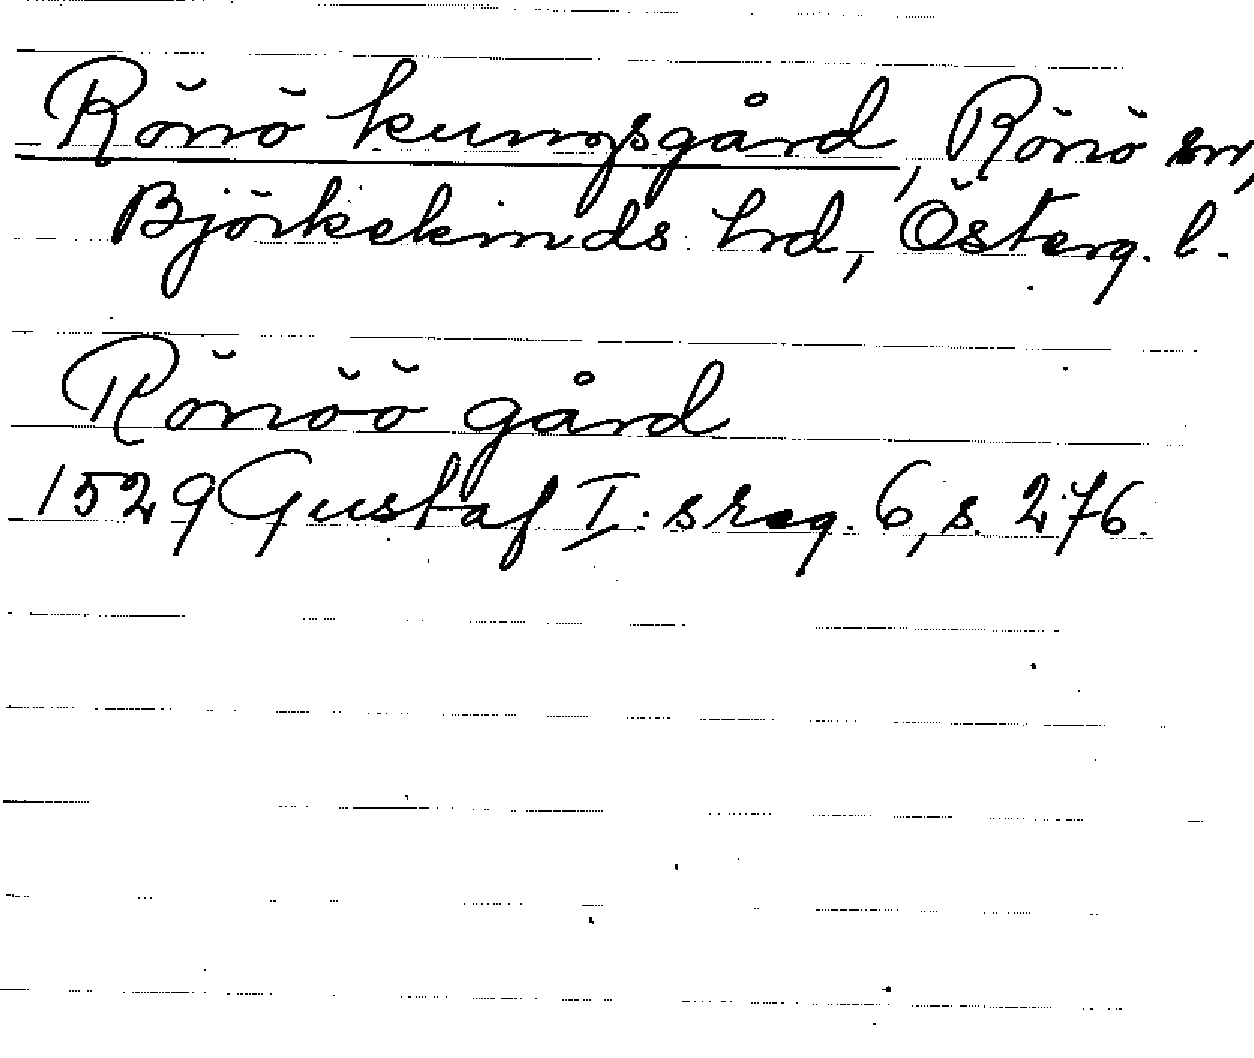 Rönö kungsgård, Rönö sn,
Björkekinds hrd, Österg. l.
Rönöö gård
1529 Gustaf I:s reg. 6, s. 276.